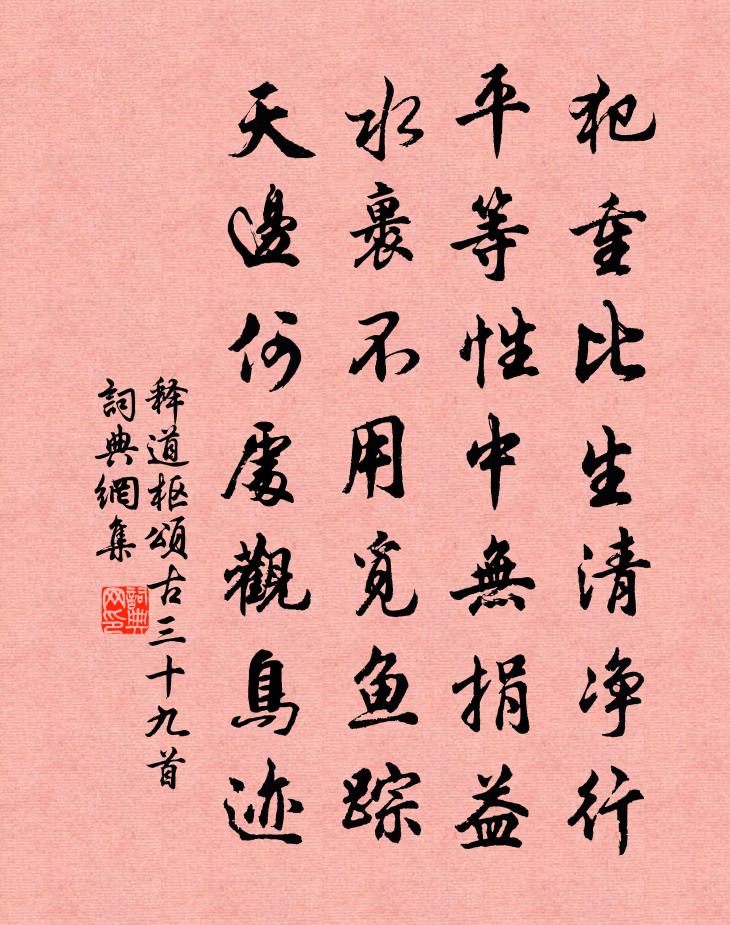 犯重比生清净行
平等性中無捐益
水裹不用覓鱼踪
天邊何處觀鳥迹
释道枢頌古三十九首
詞典網集
詞典网印